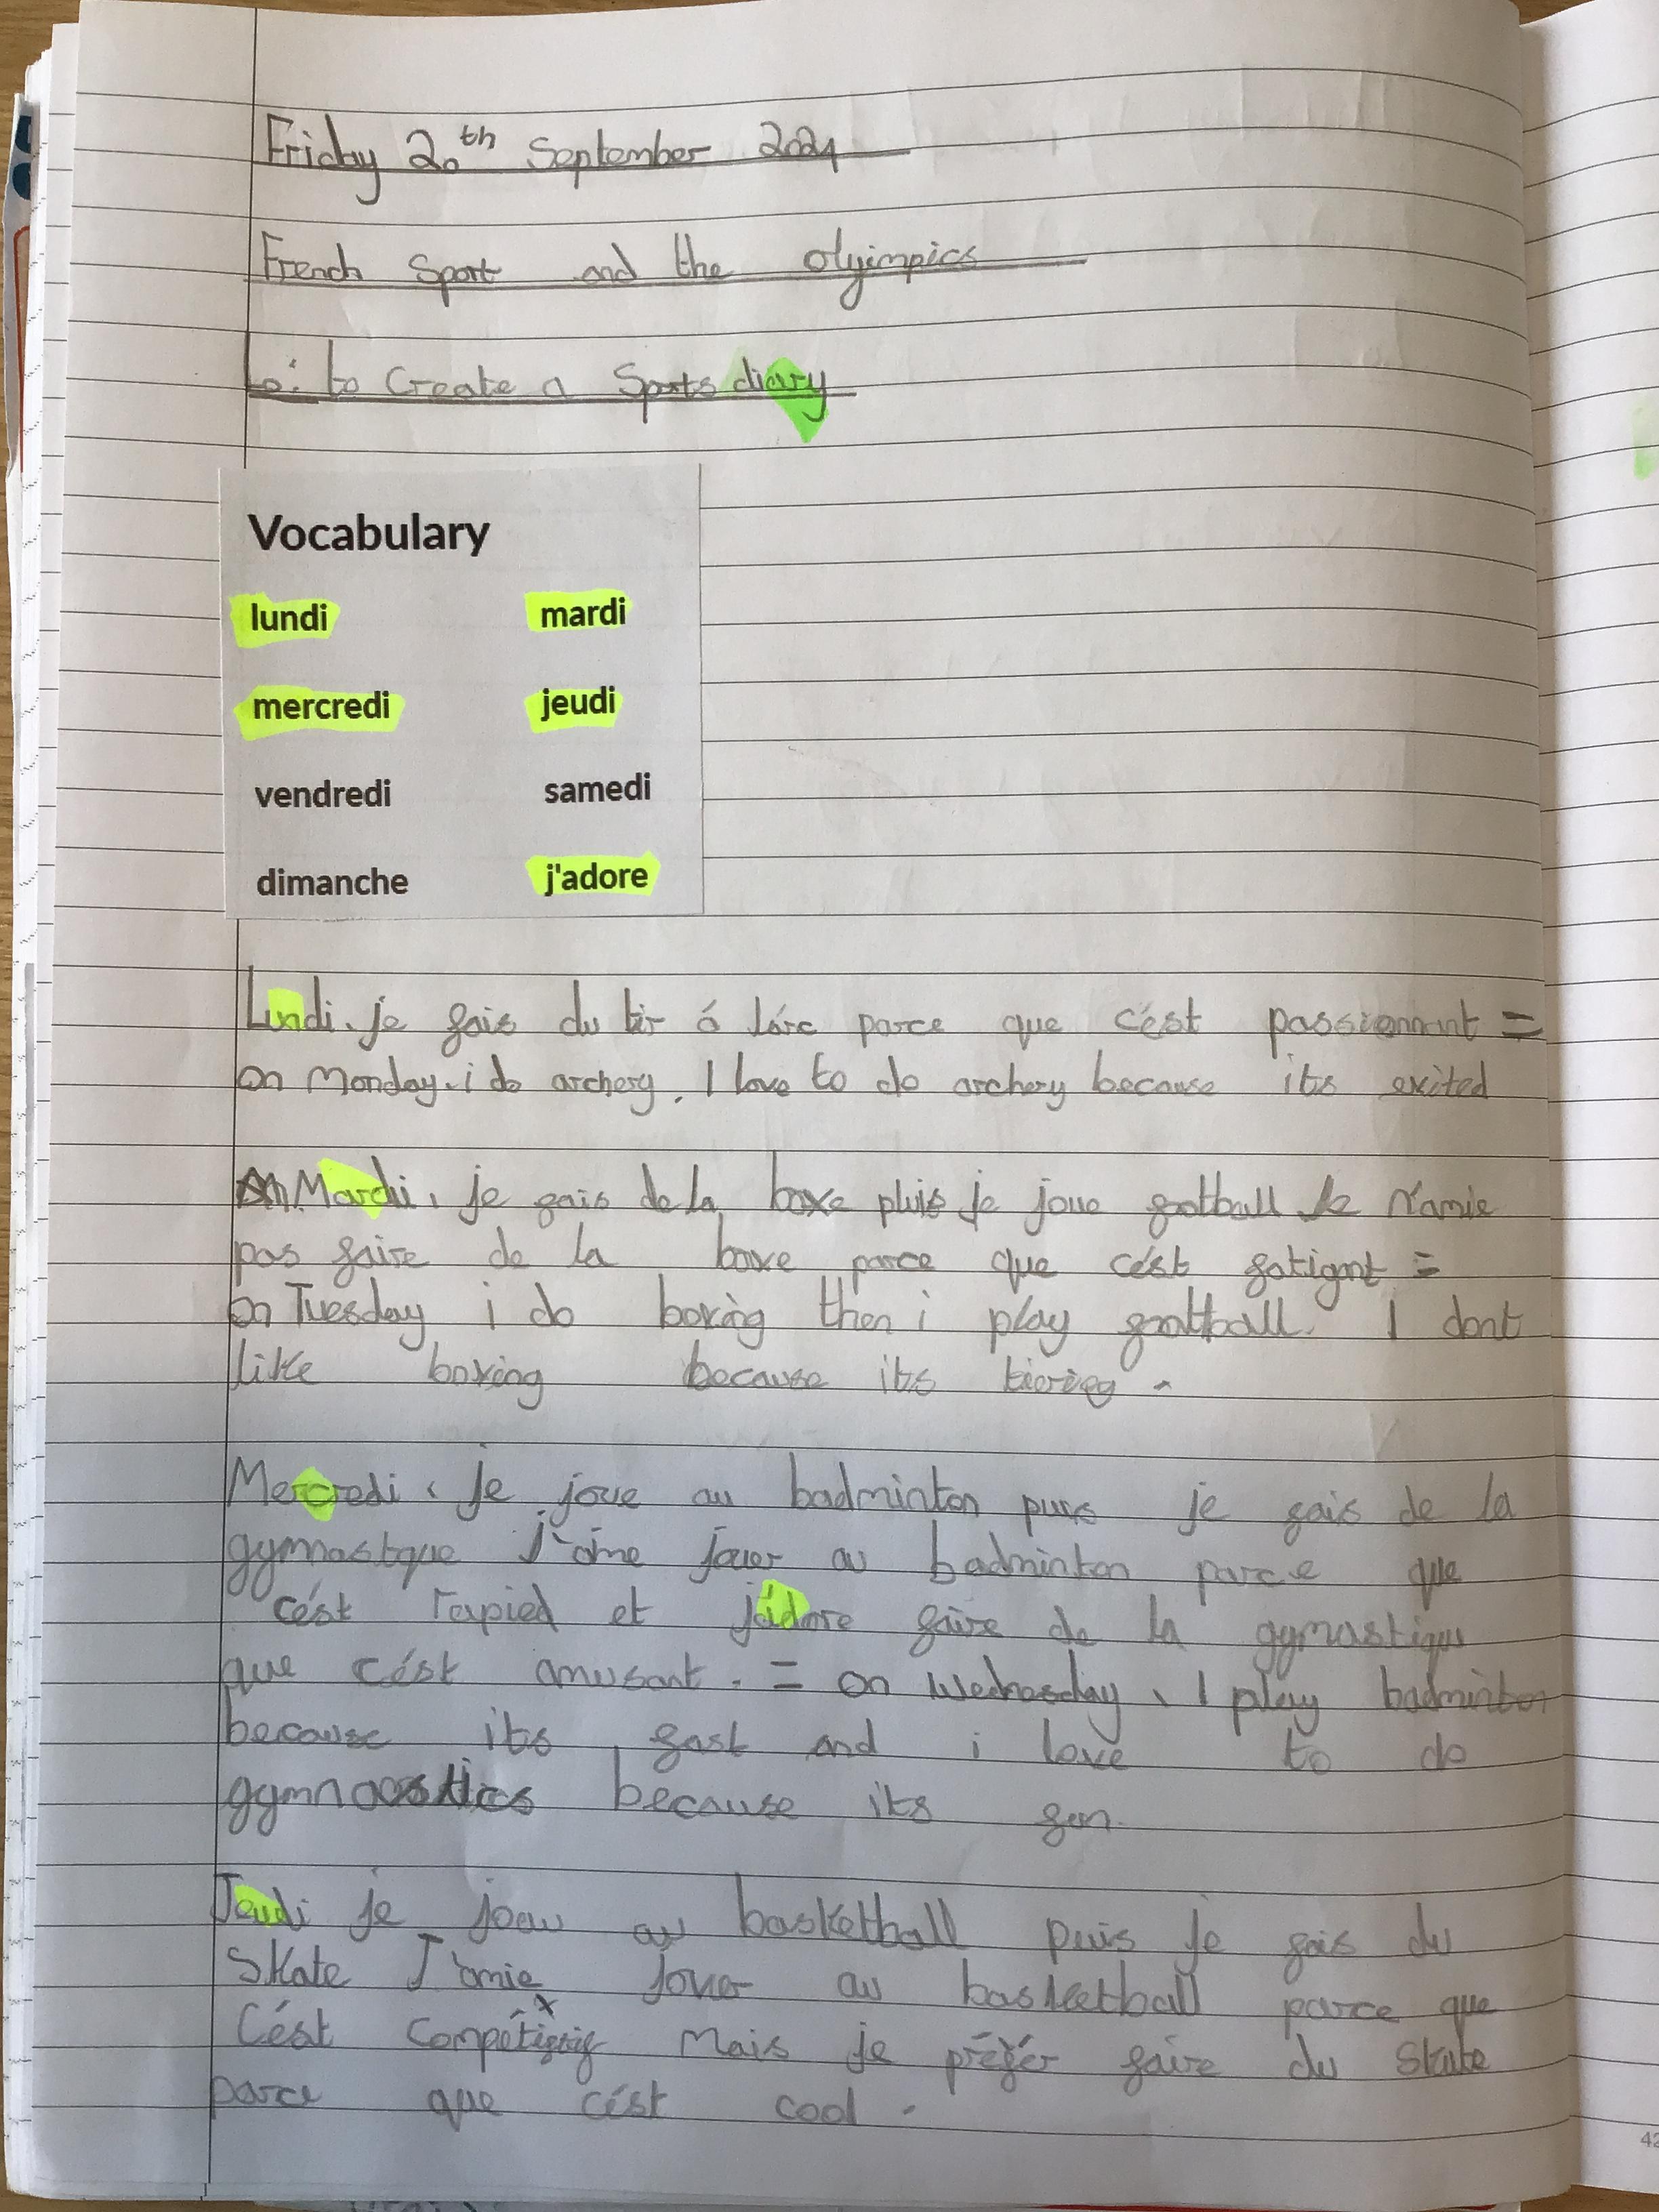 Friday 20th September 2024
French Sport and the olyimpics
Lo: to Create a Sports diary
Vocabulary
lundi mardi
mercredi jeudi
vendredi samedi
dimanche j'adore
Lundi, je fais du tir á l'árc parce que c'ést passionnant =
on Monday, i do archery. I love to do archery because its exited
Mardi, je fais de la boxe pluis je joue football Je n'amie
pas faire de la boxe parce que c'ést fatignt =
on Tuesday i do boxing then i play football. I dont
like boxing because its tiering.
Mercredi, je joue au badminton puis je fais de la
gymnastque J'aime jouer au badminton parce que
c'ést rapied et j'adore faire de la gymastique
que c'ést amusant. = on Wednesday, I play badminton
because its fast and i love to do
gymnastics because its fun.
Jeudi je joeu au basketball puis je fais du
Skate J'amie jouer au basketball parce que
C'ést Mais je préfér faire du Skate
parce que c'ést cool.
42